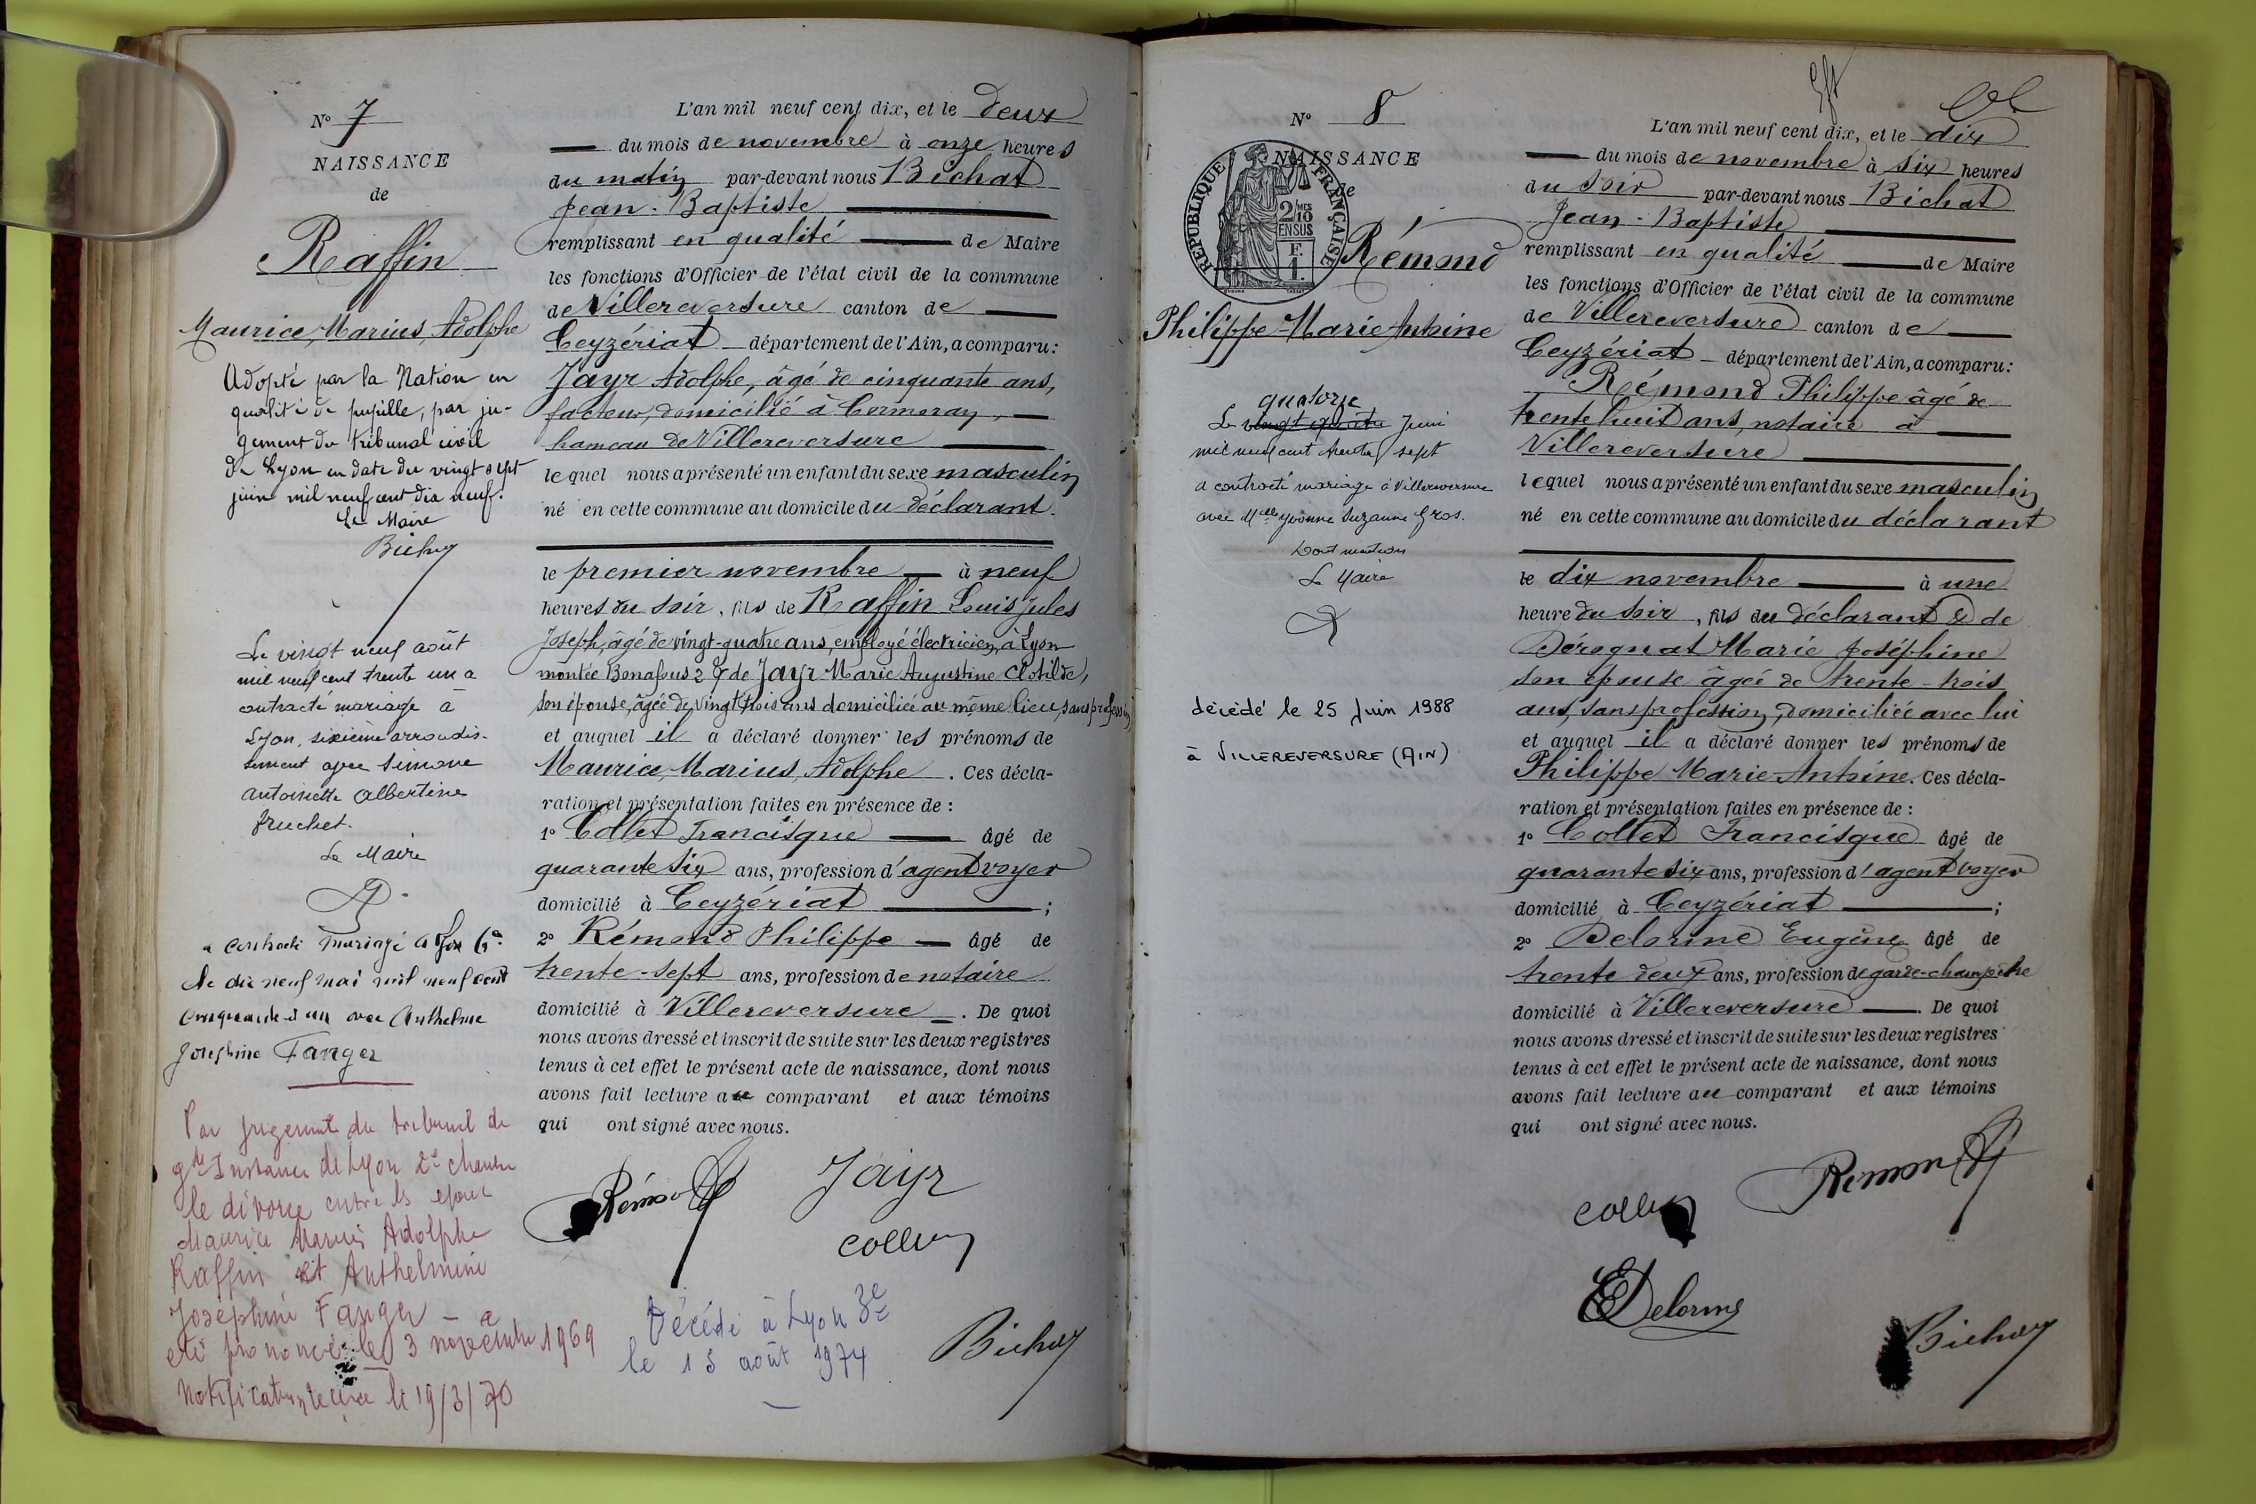 N° 7
NAISSANCE
de
Raffin
Maurice, Marius, Adolphe
Adopté par la Nation en
qualité de pupille, par ju-
gement du tribunal civil
de Lyon en date du vingt sept
juin mil neuf cent dix neuf.
Le Maire
Bichat
Le vingt neuf août
mil neuf cent trente un a
contracté mariage à
Lyon, sixième arrondis-
sement avec Simone
Antoinette Albertine
Fruchet.
Le Maire
a contracté mariage à Lyon 6e
le dix neuf mai mil neuf cent
cinquante et un avec Anthelmine
Joséphine Fanger
Par jugement du tribunal de
gde Instance de Lyon 2e chambre
le divorce entre les époux
Maurice Marius Adolphe
Raffin et Anthelmine
Joséphine Fanger - a
été prononcé le 3 novembre 1969
Notification reçue le 19/3/70
L'an mil neuf cent dix, et le deux
du mois de novembre à onze heures
du matin par-devant nous Bichat
Jean-Baptiste
remplissant en qualité de Maire
les fonctions d'Officier de l'état civil de la commune
de Villereversure canton de
Ceyzériat département de l'Ain, a comparu:
Jayr Adolphe, âgé de cinquante ans,
facteur, domicilié à Cormoray,
hameau de Villereversure
lequel nous a présenté un enfant du sexe masculin
né en cette commune au domicile du déclarant.
le premier novembre à neuf
heures du soir, fils de Raffin Louis Jules
Joseph, âgé de vingt-quatre ans, employé électricien, à Lyon
montée Bonafous 2 & de Jayr Marie Augustine Clotilde,
son épouse, âgée de vingt trois ans domiciliée au même lieu, sans profession
et auquel il a déclaré donner les prénoms de
Maurice, Marius, Adolphe. Ces décla-
ration et présentation faites en présence de :
1° Collet Francisque âgé de
quarante six ans, profession d'agent voyer
domicilié à Ceyzériat ;
2° Rémond Philippe âgé de
trente-sept ans, profession de notaire
domicilié à Villereversure. De quoi
nous avons dressé et inscrit de suite sur les deux registres
tenus à cet effet le présent acte de naissance, dont nous
avons fait lecture au comparant et aux témoins
qui ont signé avec nous.
Rémond Jayr
Collet
Décédé à Lyon 3e
le 15 août 1974
Bichat
N° 8
NAISSANCE
de
RÉPUBLIQUE FRANÇAISE
2/10 MES
EN SUS
F.
1.
Rémond
Philippe-Marie-Antoine
quatorze
Le vingt quatre Juin
mil neuf cent trente sept
a contracté mariage à Villereversure
avec Melle Yvonne Suzanne Gros.
Dont mention
Le Maire
décédé le 25 Juin 1988
à VILLEREVERSURE (AIN)
L'an mil neuf cent dix, et le dix
du mois de novembre à six heures
du soir par-devant nous Bichat
Jean-Baptiste
remplissant en qualité de Maire
les fonctions d'Officier de l'état civil de la commune
de Villereversure canton de
Ceyzériat département de l'Ain, a comparu:
Rémond Philippe âgé de
trente huit ans, notaire à
Villereversure
lequel nous a présenté un enfant du sexe masculin
né en cette commune au domicile du déclarant
le dix novembre à une
heure du soir, fils du déclarant & de
Dérognat Marie Joséphine
son épouse âgée de trente-trois
ans, sans profession, domiciliée avec lui
et auquel il a déclaré donner les prénoms de
Philippe Marie-Antoine. Ces décla-
ration et présentation faites en présence de :
1° Collet Francisque âgé de
quarante six ans, profession d'agent voyer
domicilié à Ceyzériat ;
2° Delorme Eugène âgé de
trente deux ans, profession de garde-champêtre
domicilié à Villereversure. De quoi
nous avons dressé et inscrit de suite sur les deux registres
tenus à cet effet le présent acte de naissance, dont nous
avons fait lecture au comparant et aux témoins
qui ont signé avec nous.
Collet Rémond
EDelorme
Bichat